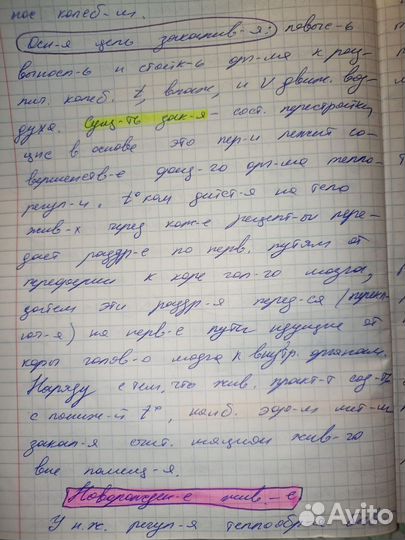 ное колеб-ия.
Осн-я цель закалив-я: повыс-ь
выносл-ь и стойк-ь орг-ма к раз-
лич. колеб. t, влажн, и V движ. воз-
духа. Сущ-ть зак-я - сост. перестройки,
в основе это лежит со-
вершенств-е орг-ма тепло-
регул-и. t° на тело
жив-х через кож-е рецепт-ы пере-
дает раздр-е по нерв. путям от
периферии к коре гол-го мозга,
затем эти раздр-я перед-ся (перекл
юч-я) на нерв-е пути идущие от
коры голов-о мозга к внутр. органам.
Наряду с тем, что жив. практ-т сод-ть
с пониж-й t°, наиб. эфф-м
закал-я счит. жив-го
вне помещ-я.
Новорожден-е жив.-е
У н.ж. регул-я теплообр-я
Avito